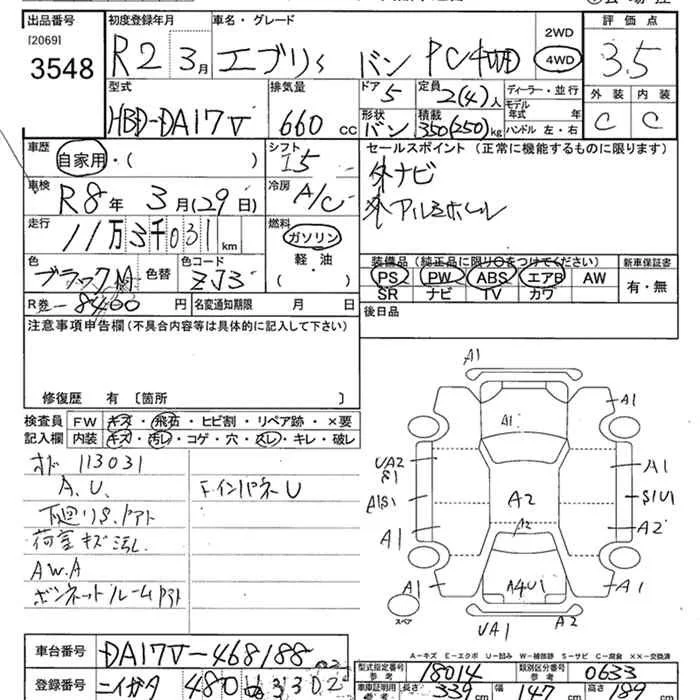 出品番号
[2069]
3548
初度登録年月
R2 3月
車名・グレード
エブリィ バン PC 4WD
2WD
4WD
評価点
3.5
外装 内装
C C
型式
HBD-DA17V
排気量
660 cc
ドア
5
定員
2(4)人
形状
バン
積載
350(250)kg
ディーラー・並行
モデル
年式 年
ハンドル 左・右
車歴
自家用・( )
シフト
I5
車検
R8年 3月(29日)
冷房
A/C
走行
11万3千031 km
燃料
ガソリン
軽・油
( )
色
ブラックM
色替
色コード
ZJ3
R券 8400 円
名変通知期限 月 日
セールスポイント(正常に機能するものに限ります)
外ナビ
外アルミホイル
装備品(純正品に限り○をつけてください)
PS PW ABS エアB AW
SR ナビ TV カワ
新車保証書
有・無
後日品
注意事項申告欄(不具合内容等は具体的に記入して下さい)
修復歴 有〔箇所 〕
検査員
記入欄
FW キズ・飛石・ヒビ割・リペア跡・×要
内装 キズ・汚レ・コゲ・穴・スレ・キレ・破レ
オド 113031
A.U.
下廻りS.アト
荷室キズ汚レ
AW.A
ボンネットルームサト
FインパネU
A1
A1
A1
UA2
S1
A1
A1S1
A2
S1U1
A1
A2
A2
A1
A4U1
A1
スペア
UA1
A2
A-キズ E-エクボ U-凹み W-補修跡 S-サビ C-腐食 ××-交換済
車台番号
DA17V-468188
登録番号
ニイガタ 480
型式指定番号
参考
18014
類別区分番号
参考
0633
車庫証明用
参考
長さ 339 cm
幅 147 cm
高さ 199 cm